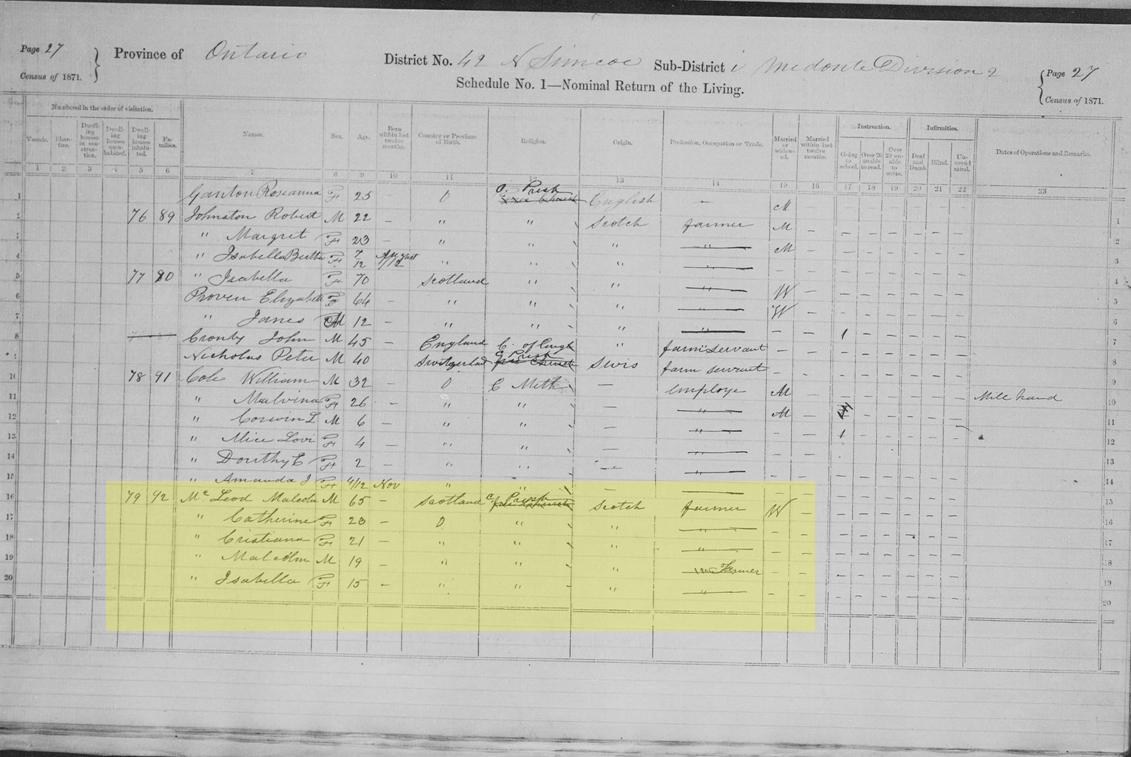 Page 27 Province of Ontario District No. 42 N Simcoe Sub-District i Medonte Division 2 Page 27
Census of 1871. Census of 1871.
Schedule No. 1—Nominal Return of the Living.
Numbered in the order of visitation. Instruction. Infirmities.
Vessels. Shanties. Dwelling houses in construction. Dwelling houses uninhabited. Dwelling houses inhabited. Families. Names. Sex. Age. Born within last twelve months. Country or Province of Birth. Religion. Origin. Profession, Occupation or Trade. Married or widowed. Married within last twelve months. Going to school. Over 20 unable to read. Over 20 unable to write. Deaf and Dumb. Blind. Unsound mind. Dates of Operations and Remarks.
1 2 3 4 5 6 7 8 9 10 11 12 13 14 15 16 17 18 19 20 21 22 23
1 Ganton Roseanna F 25 — O C. Presb English — M
76 89 Johnston Robert M 22 — " " Scotch farmer M —
" Margret F 23 — " " " " M —
" Isabella Bertha F 7/12 " " " "
77 80 " Isabella F 70 — Scotland " " " W —
Proven Elizabeth F 64 — " " " " W —
" Janes M 12 — " " " " 1
Cronby John M 45 — England C of Engl " farm servant
Nicholas Peter M 40 — Switzerland C. Presb Swis farm servant
78 91 Cole William M 32 — O C Meth — Employe M — Mill hand
" Malvina F 26 — " " — " M —
" Corwin L M 6 — " " — "
" Alice Lovi F 4 — " " — " 1
" Dorithy E F 2 — " " — "
" Amanda J F 4/12 Nov " " "
79 92 Mc Leod Malcolm M 65 — Scotland C. Presb Scotch farmer W —
" Catherine F 23 — O " " "
" Cristiana F 21 — " " " "
" Malcolm M 19 — " " " Farmer
" Isabella F 15 — " " " "